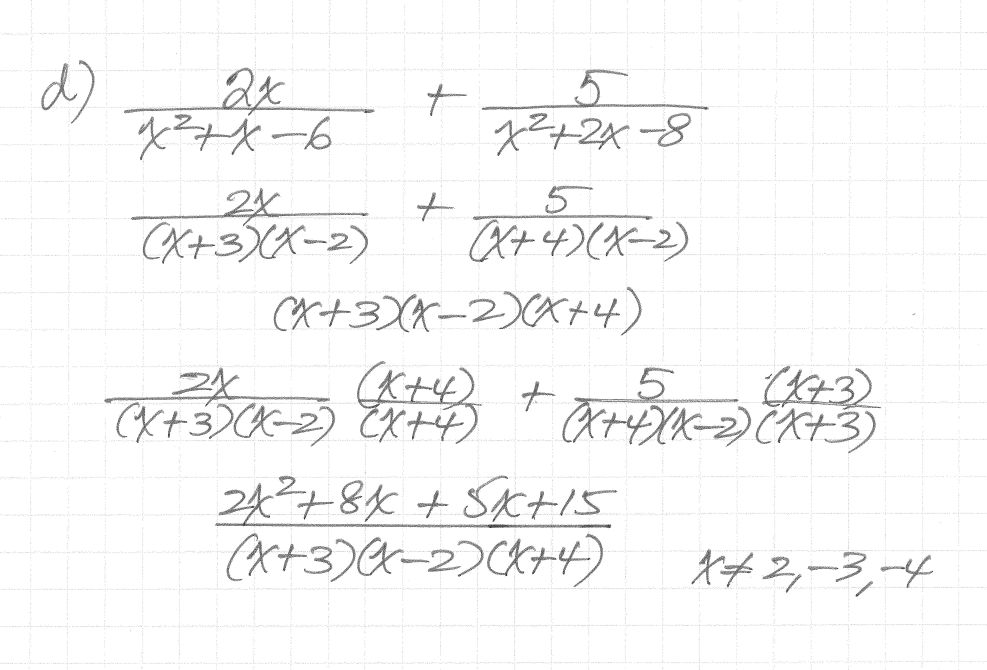 d) 2x/(x²+x-6) + 5/(x²+2x-8)
2x/((x+3)(x-2)) + 5/((x+4)(x-2))
(x+3)(x-2)(x+4)
2x/((x+3)(x-2)) (x+4)/(x+4) + 5/((x+4)(x-2)) (x+3)/(x+3)
(2x²+8x+5x+15)/((x+3)(x-2)(x+4)) x≠2,-3,-4